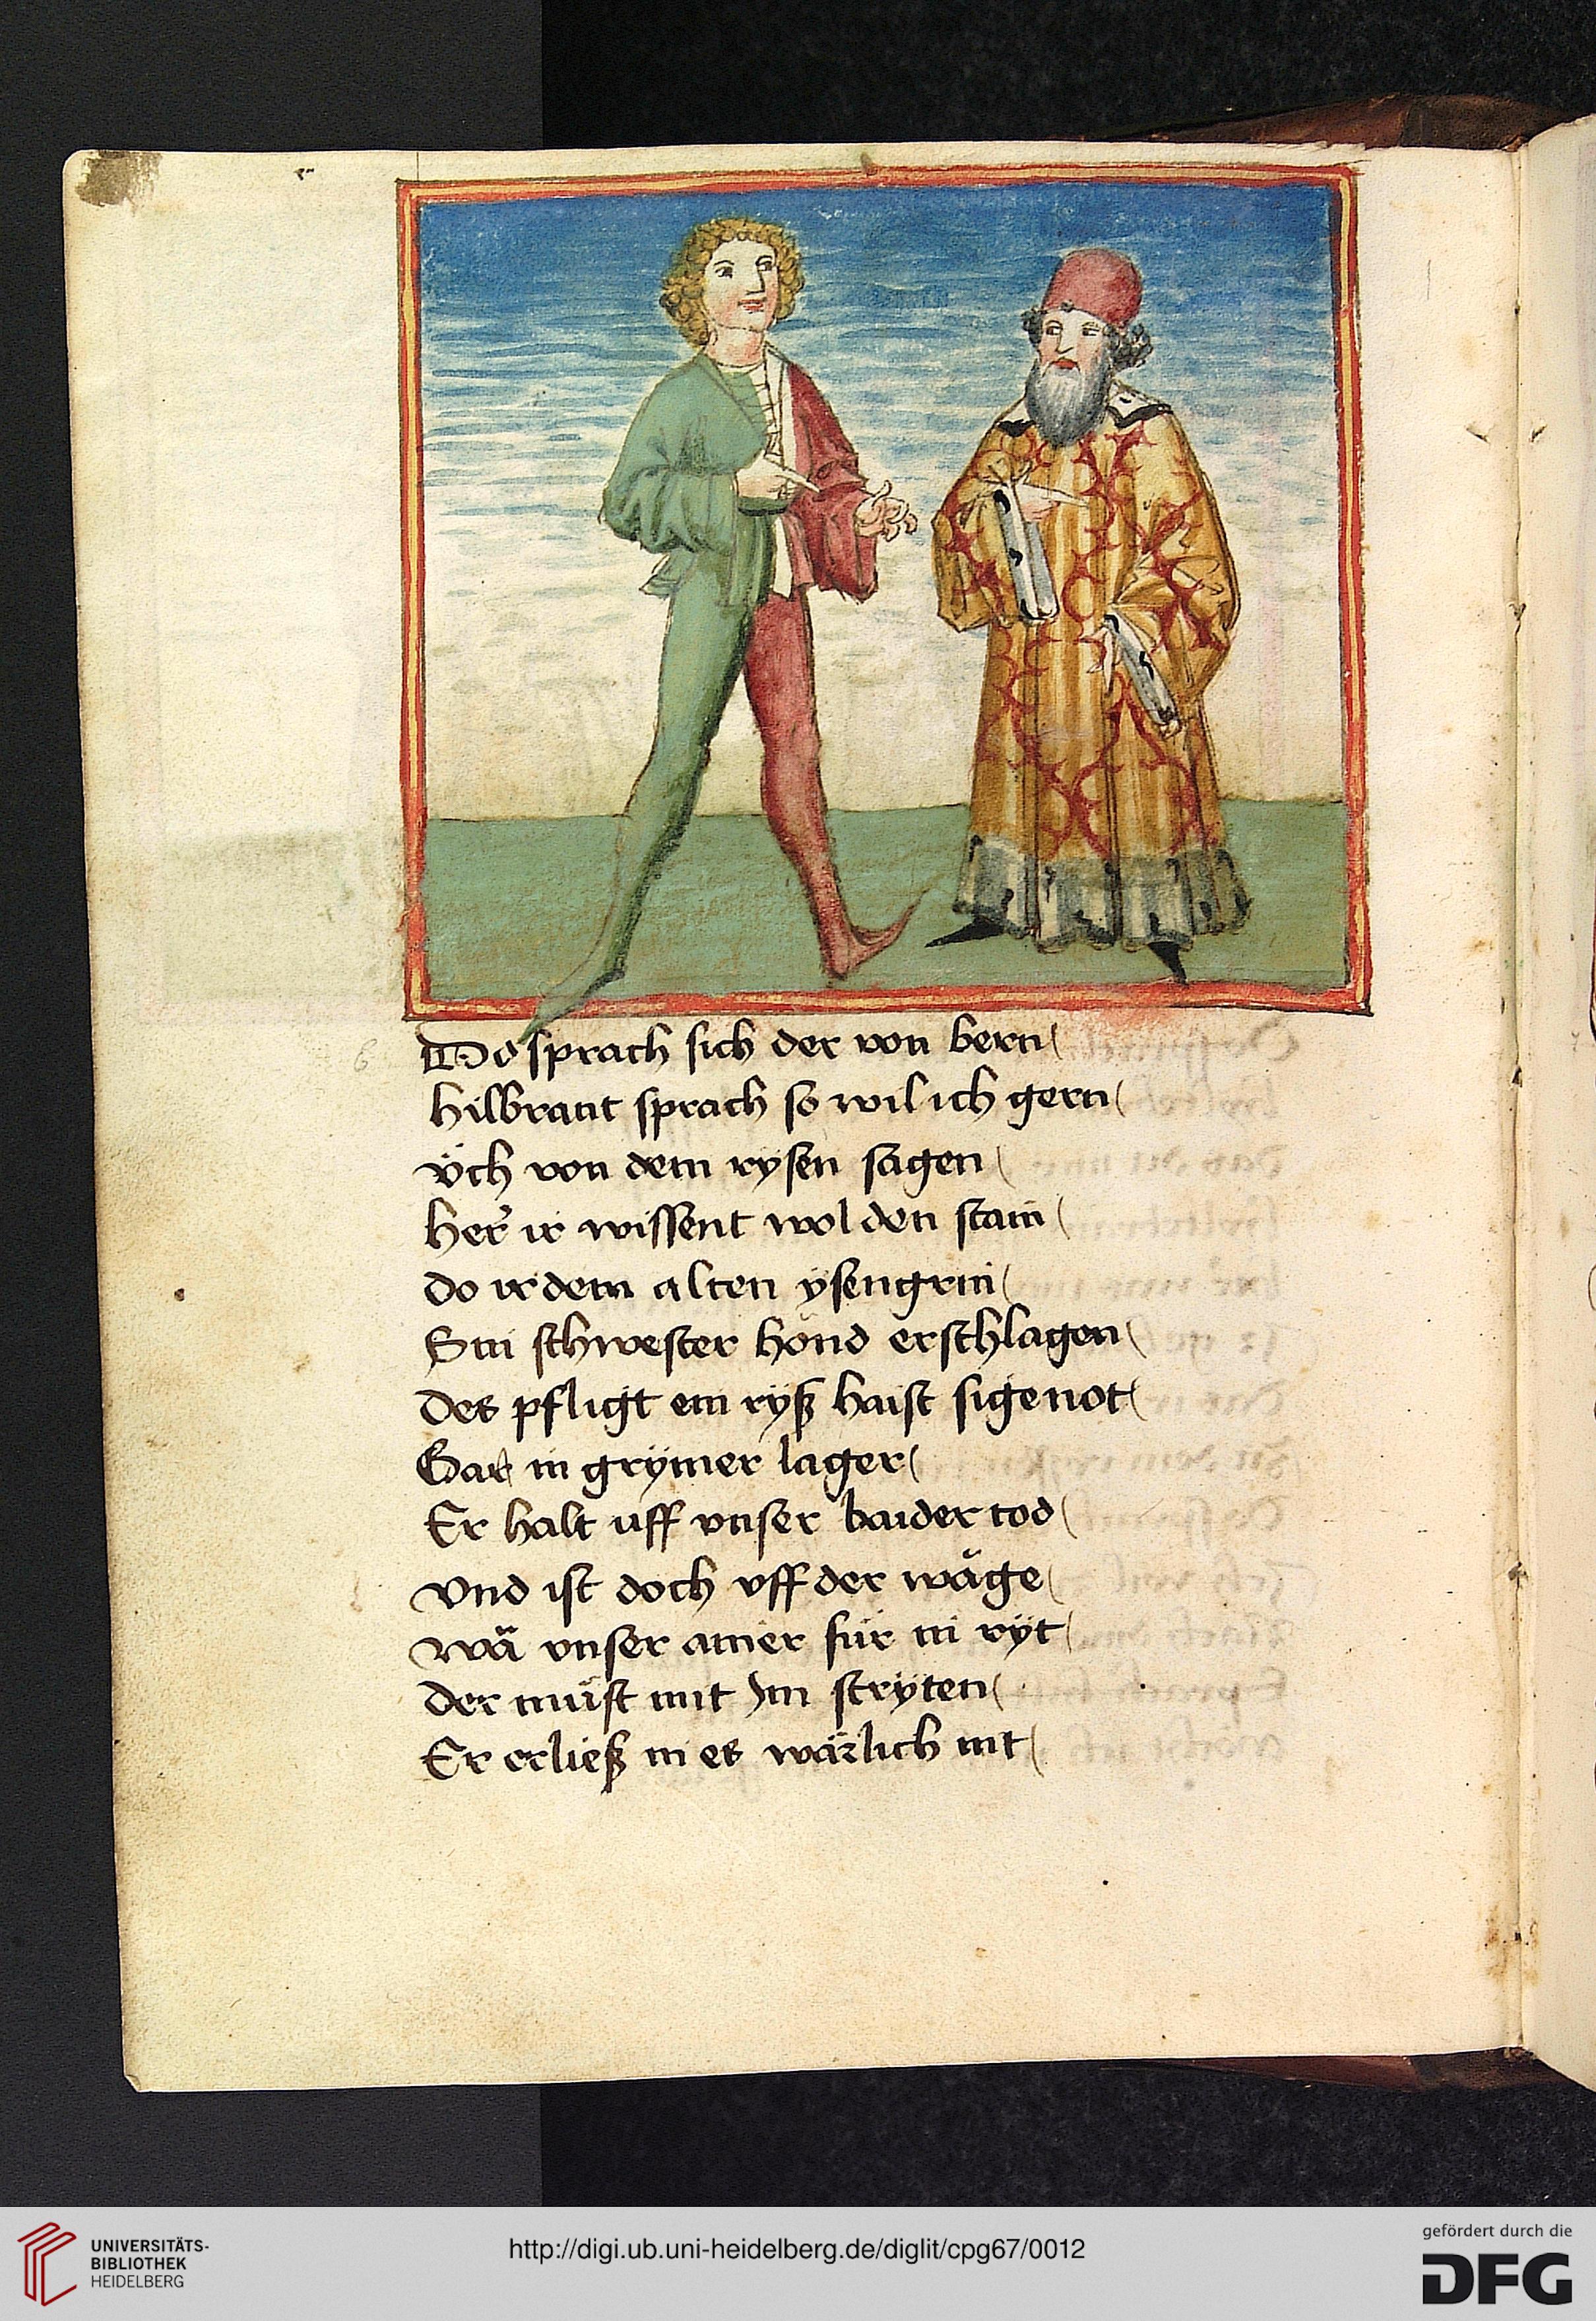 6
Do sprach sich der von bern
hilbrant sprach so wil ich gern
v̈ch von dem rysen sagen
her ir wissent wol den stain
do ir dem alten ysengrin
Sin schwester hönd erschlagen
des pfligt ein ryß haist sigenot
Gar in grymer lager
Er halt uff vnser baider tod
vnd ist doch vff der wäge
wä vnser ainer für in ryt
der müst mit Im stryten
Er erließ in es wärlich nit
UNIVERSITÄTS-
BIBLIOTHEK
HEIDELBERG
http://digi.ub.uni-heidelberg.de/diglit/cpg67/0012
gefördert durch die
DFG